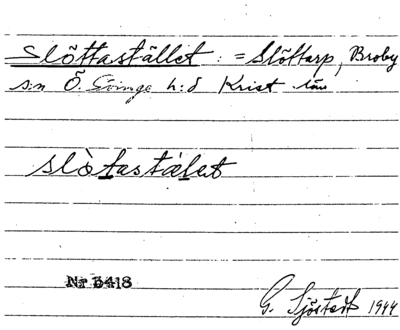 Slöttastället : = Slöttarp, Broby
s:n Ö. Göinge h:d Krist län
slòtastálet
Nr B418
G. Sjöstedt 1944